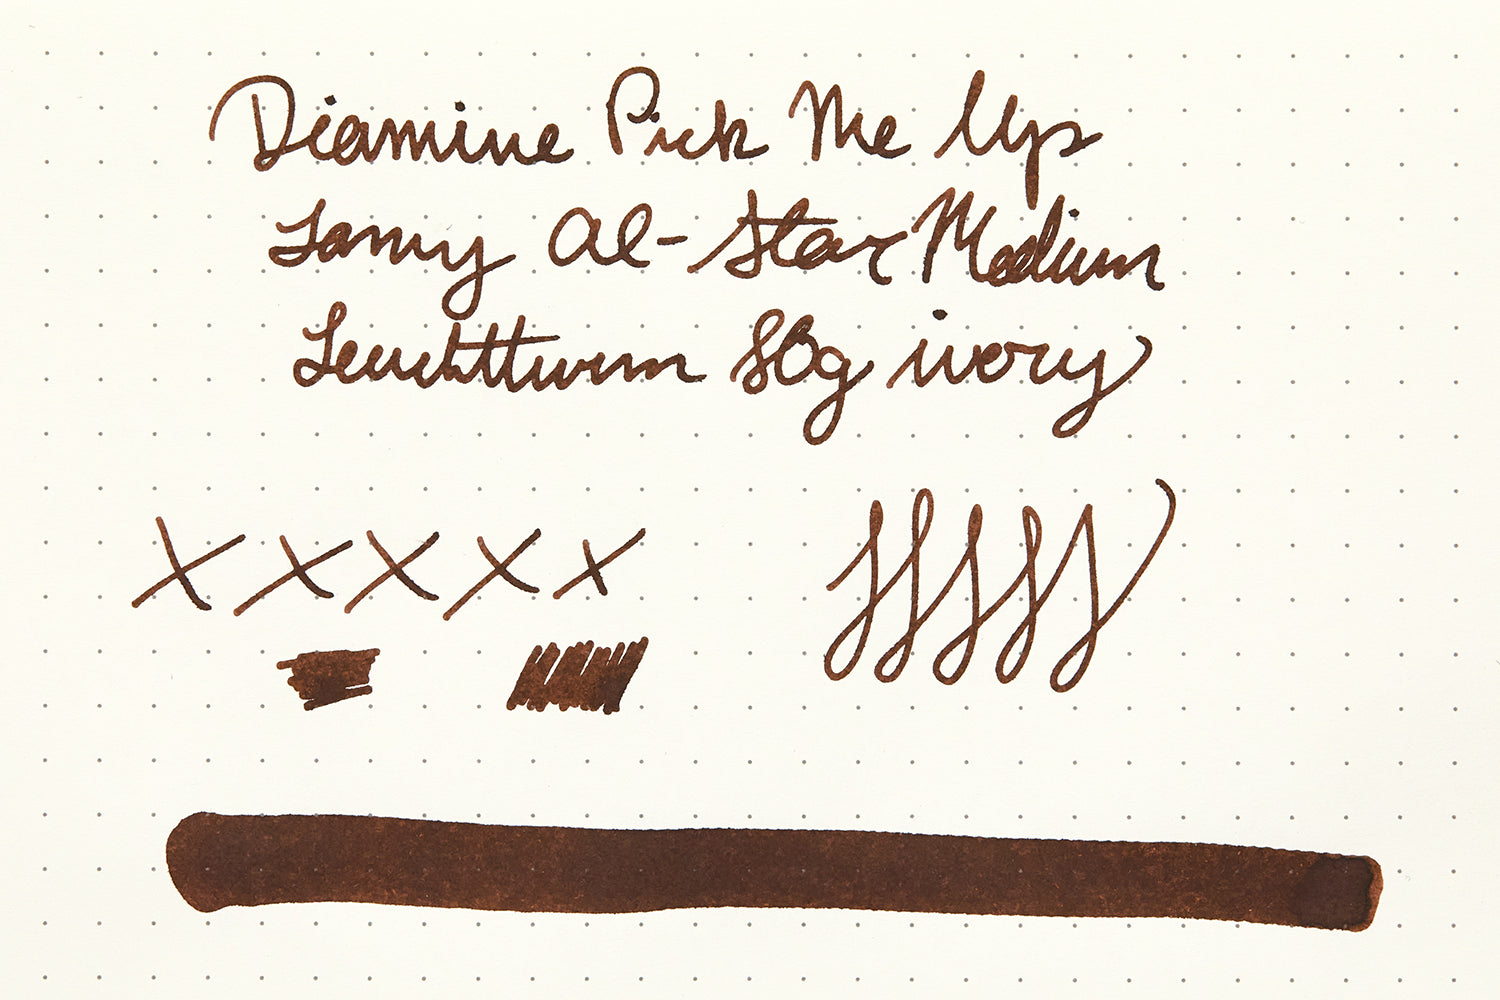 Diamine Pick Me Up
Lamy Al-Star Medium
Leuchtturm 80g ivory
x x x x x